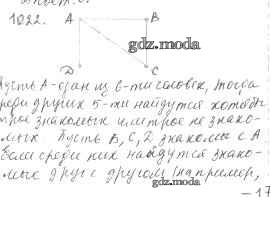 1022. A B
gdz.moda
D C
Пусть А-один из 6-ти человек, тогда
среди других 5-ти найдутся хотя бы
трое знакомых или трое не знако-
мых. Пусть В, С, D знакомы с А
Если среди них найдутся знако-
мые друг с другом (например,
gdz.moda
-17